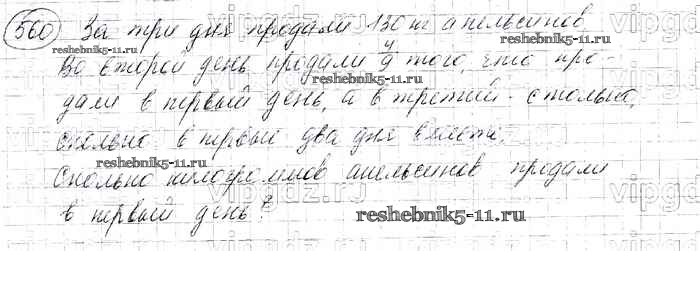 560 За три дня продали 130 кг апельсинов
reshebnik5-11.ru
reshebnik5-11.ru
vipgdz.ru
Во второй день продали 4/9 того, что про-
дали в первый день, а в третий - столько,
сколько в первые два дня вместе.
reshebnik5-11.ru
Сколько килограммов апельсинов продали
vipgdz.ru
vipgdz.ru
в первый день?
reshebnik5-11.ru